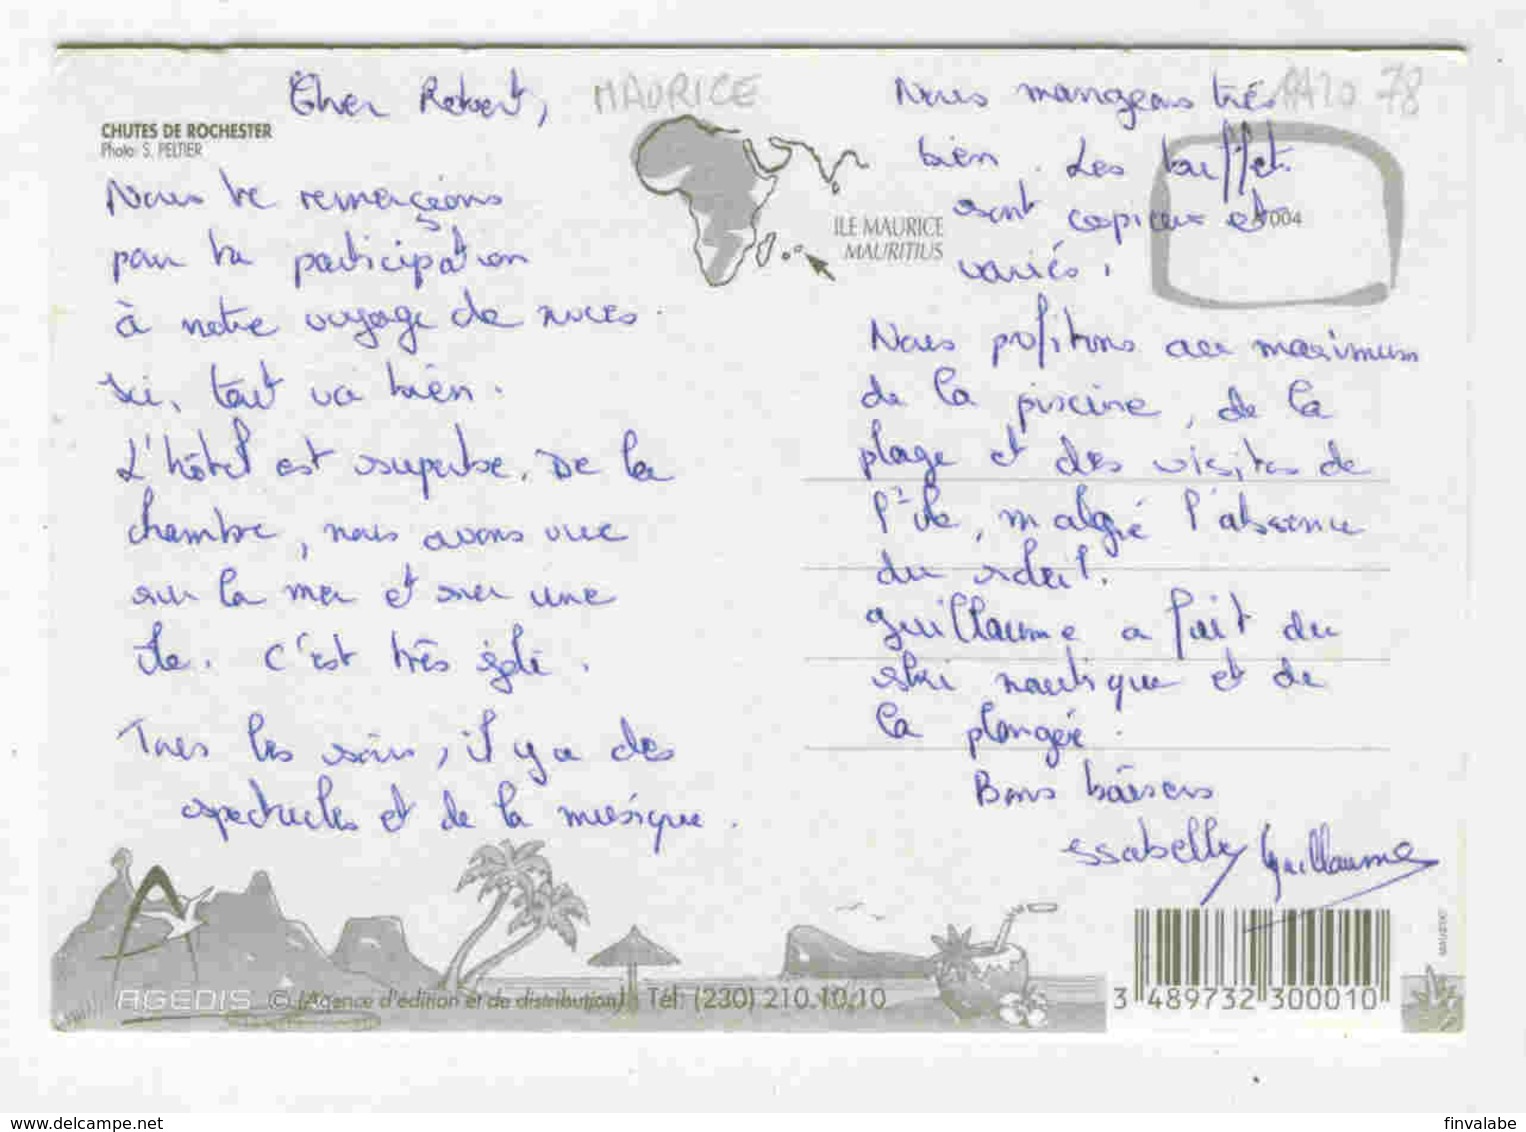 Cher Robert,
MAURICE
CHUTES DE ROCHESTER
Photo: S. PELTIER
Nous te remerçions
pour ta participation
à notre voyage de noces.
Ici, tout va bien.
L'hôtel est superbe. De la
chambre, nous avons vue
sur la mer et sur une
île. C'est très joli.
Tous les soirs, il y a des
spectacles et de la musique.
ILE MAURICE
MAURITIUS
Nous mangeons très
bien. Les buffets
sont copieux et
variés.
004
78
Nous profitons au maximum
de la piscine, de la
plage et des visites de
l'île, malgré l'absence
du soleil.
Guillaume a fait du
ski nautique et de
la plongée.
Bons baisers
Issabelle Guillaume
AGEDIS © (Agence d'édition et de distribution) Tél: (230) 210.10.10
3 489732 300010
www.delcampe.net
finvalabe